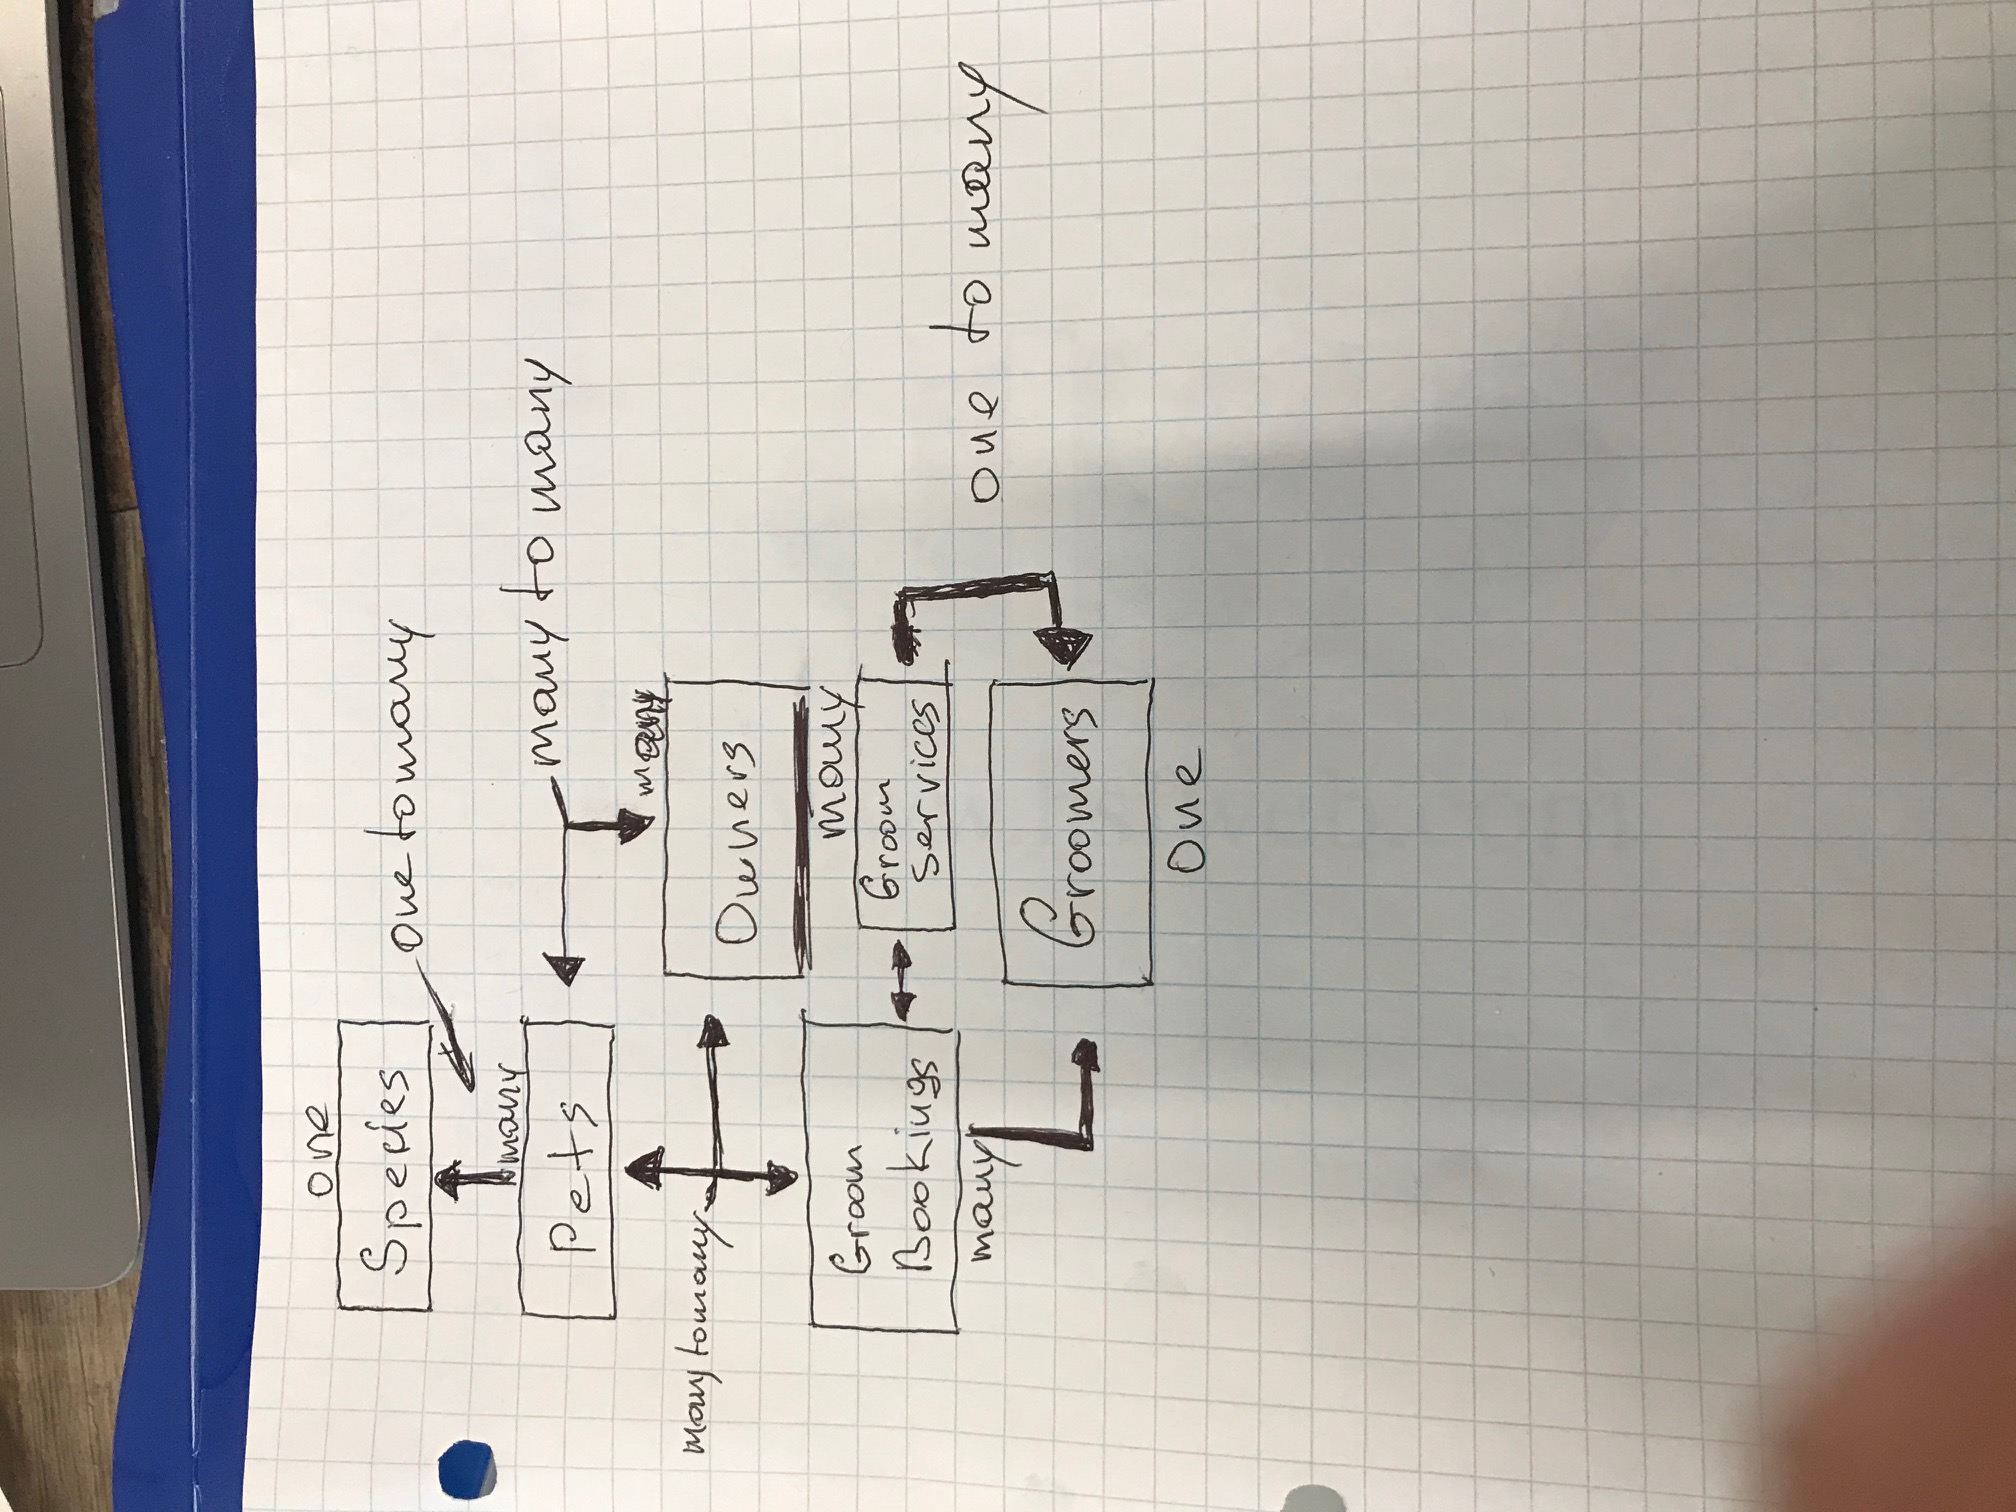 one
Species
one to many
many
Pets
many to many
many
many to many
Owners
many
Groom
Bookings
Groom
Services
many
one to many
Groomers
One